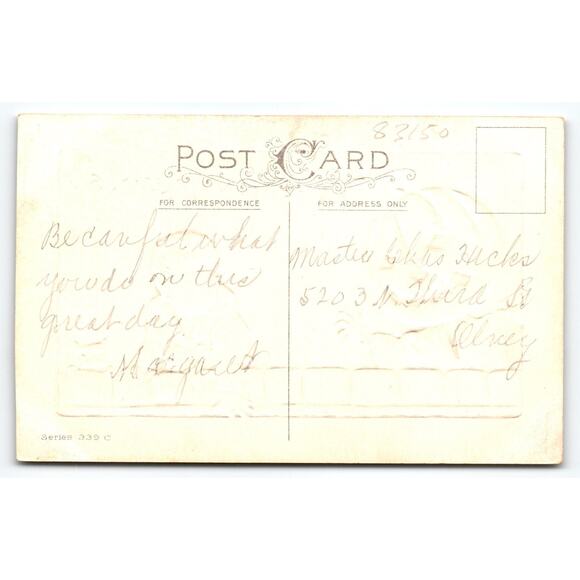 83150
POST CARD
FOR CORRESPONDENCE
FOR ADDRESS ONLY
Be carful what
you do on this
great day
Margaret
Master Chas Hucks
5203 N. Third St
Olney
Series 339 C